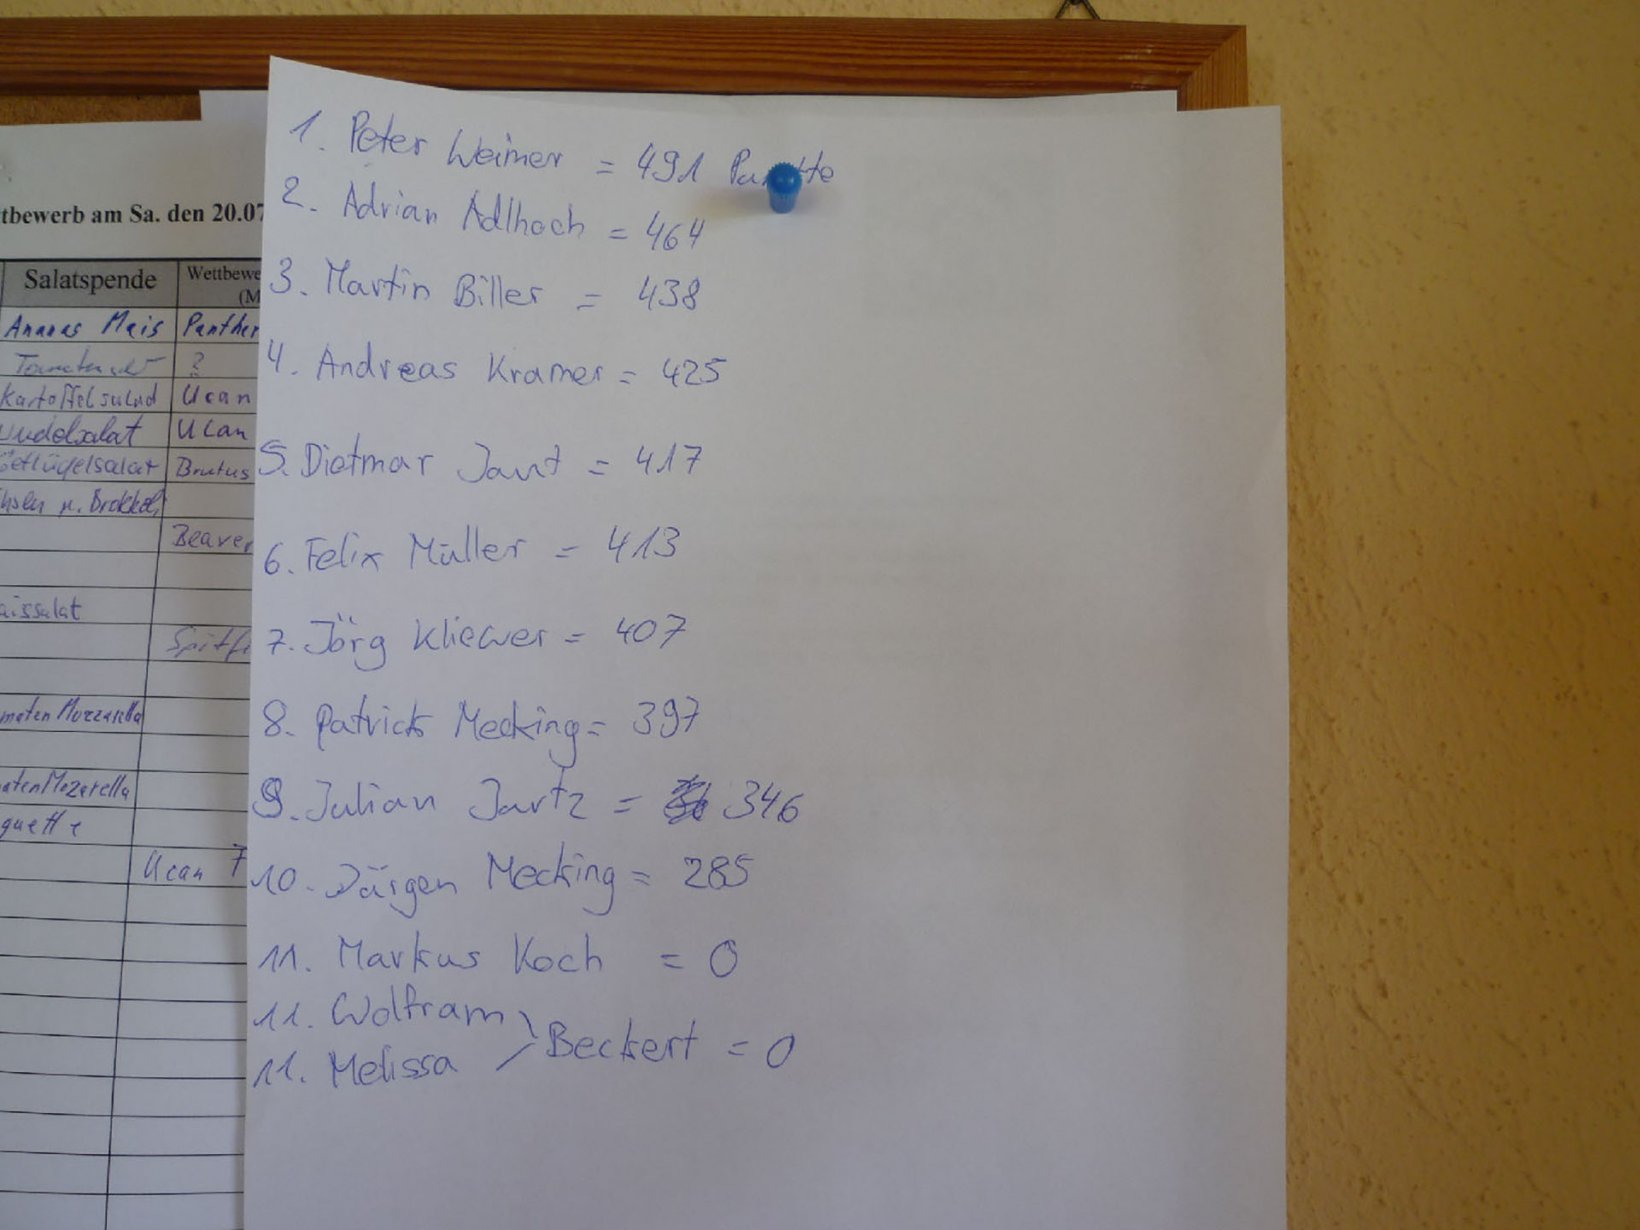 1. Peter Weimer = 491 Punkte
2. Adrian Adlhoch = 464
3. Martin Biller = 438
4. Andreas Kramer = 425
5. Dietmar = 417
6. Felix Müller = 413
7. Jörg Kliewer = 407
8. Patrick Mecking = 397
9. Julian Jartz = 346
10. Jürgen Mecking = 285
11. Markus Koch = 0
11. Wolfram
Beckert = 0
11. Melissa
tbewerb am Sa. den 20.07
Salatspende Wettbewe
(M
Ananas Mais Panther
?
Kartoffelsalad Ucan
udelsalat Ucan
Geflügelsalat Brutus
Beaver
aissalat
Spitfi
maten Mozzarella
atenMozarella
guette
Ucan 7